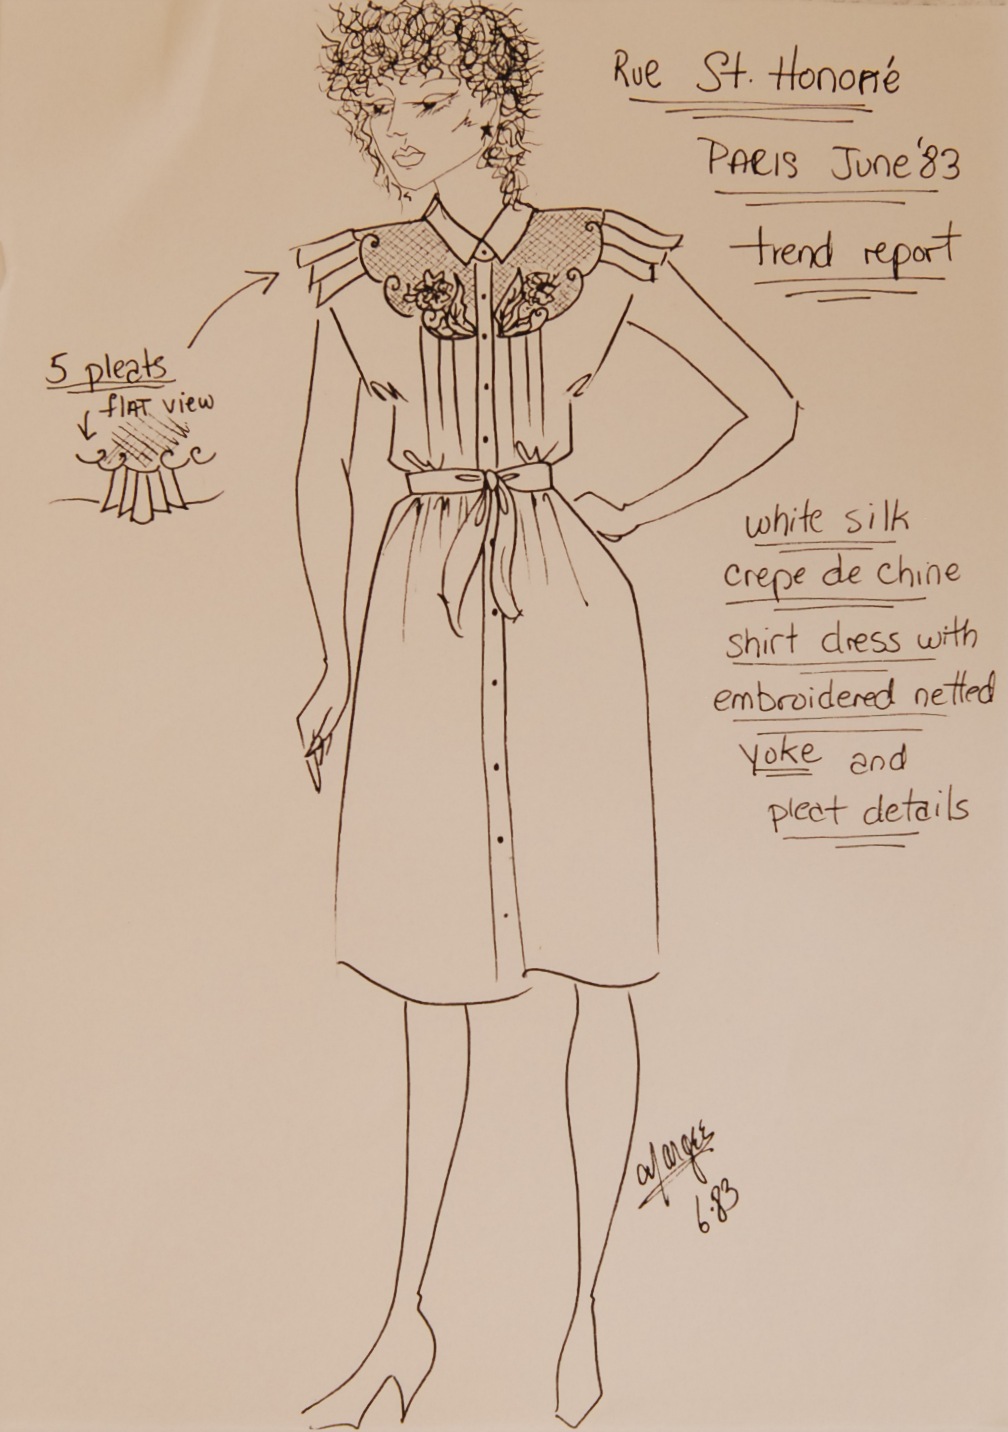 Rue St. Honoré
PARIS June '83
trend report
5 pleats
flAT view
white silk
crepe de chine
shirt dress with
embroidered netted
yoke and
pleat details
Margee
6.83